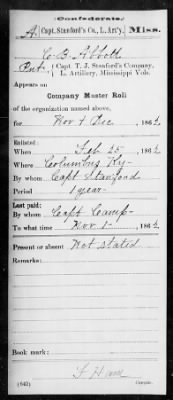 Confederate.
A. Capt. Stanford's Co., L. Art'y. Miss.
C. B. Abbott
Pvt., Capt. T. J. Stanford's Company,
L. Artillery, Mississippi Vols.
Appears on
Company Muster Roll
of the organization named above,
for Nov & Dec, 186
Enlisted:
When Feb 25, 186
Where Columbus Ky
By whom Capt Stanford
Period 1 year
Last paid:
By whom Capt Camp
To what time Nov 1, 186
Present or absent Not stated
Remarks:
Book mark:
(642) Copyist.